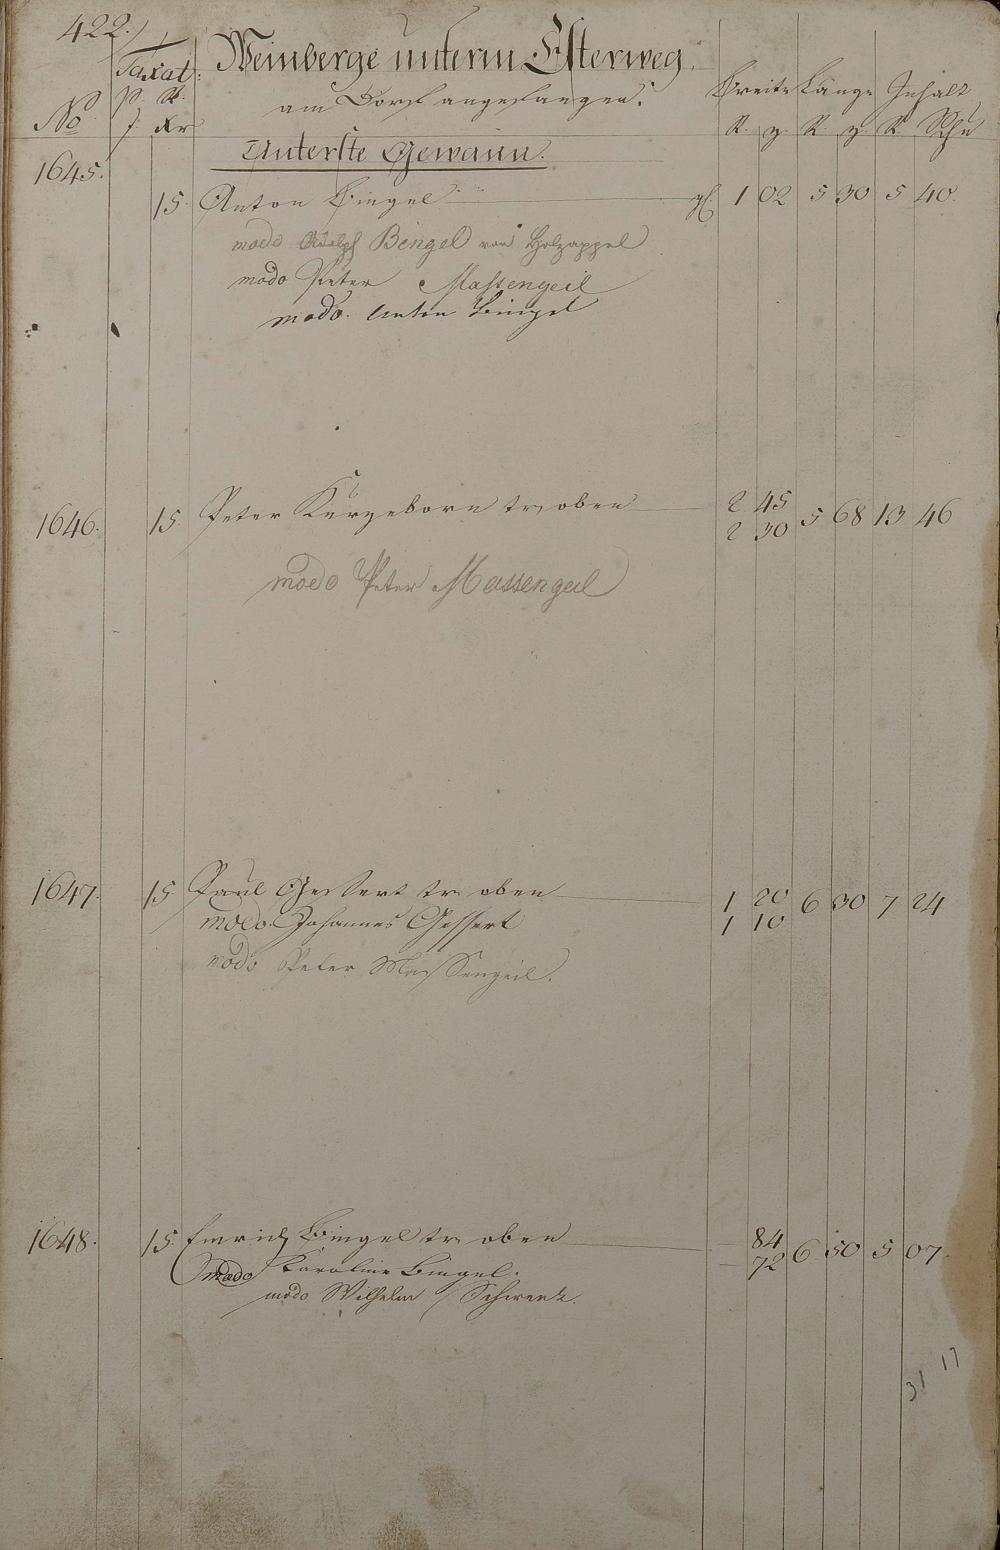 422.
Weinberge unterm Esterweg.
am Dorf angefangen.
No Taxat: Breite Länge Inhalt
P. R. Kr R. z R. z. R Schu
Unterste Gewann.
1645. 15. Anton Bingel gl. 1 02 5 30 5 40.
modo Adolph Bengel von Holzapfel
modo Peter Massengeil
modo. Anton Bingel
1646. 15. Peter Kurzeborn tr. oben 2 45 5 68 13 46
2 30
modo Peter Massengeil
1647. 15 Paul Gessert tr. oben 1 20 6 30 7 24
1 10
modo. Johannes Gessert
modo Peter Massengeil.
1648. 15. Emrich Bingel tr. oben – 84 6 50 5 07.
– 72
modo Karoline Bingel.
modo Wilhelm Schwenk.
31 17